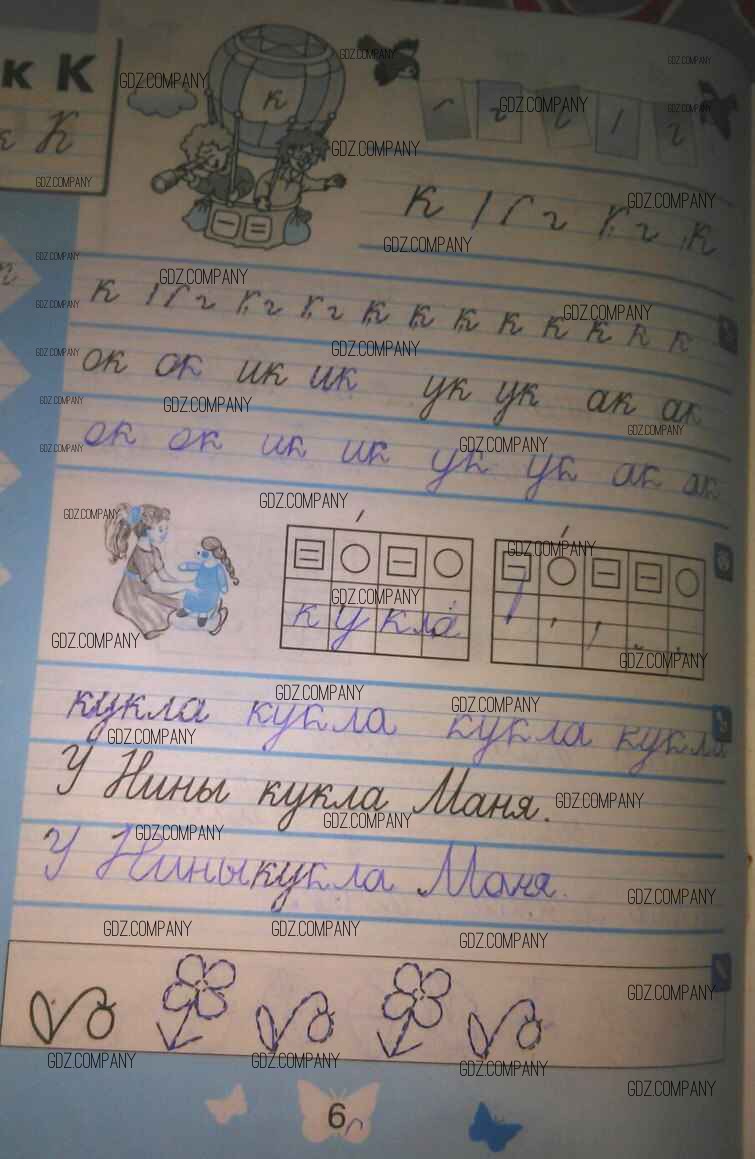 к К
К
к
к
к к
к к к к к к к к к к к
ок ок ик ик ук ук ак ак
ок ок ик ик ук ук ак ак
кукла
кукла кукла кукла кукла
У Нины кукла Маня.
У Нины кукла Маня.
6
GDZ.COMPANY